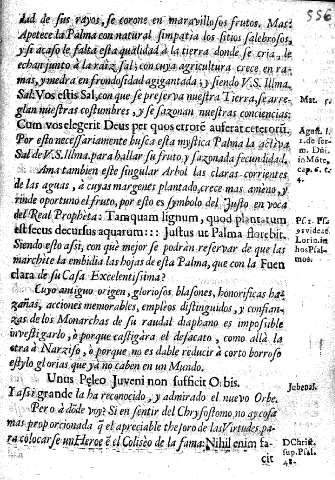 556
dad de sus rayos, se corone en maravillosos frutos. Mas
Apetece la Palma con natural simpatia los sitios salebrosos,
y si acaso le falta esta qualidad à la tierra donde se cria, le
echan junto à la raiz sal; con cuya agricultura crece en ra-
mas, y medra en frondosidad agigantada; y siendo V.S. Illma.
Sal: Vos estis Sal, con que se preserva nuestra Tierra, se arre-
glan nuestras costumbres, y se sazonan nuestras conciencias:
Cum vos elegerit Deus per quos errorẽ auferat ceterorũ.
Por esto necessariamente busca esta mystica Palma la activa
Sal de V.S. Illma. para hallar su fruto, y sazonada fecundidad.
Ama tambien este singular Arbol las claras corrientes
de las aguas, à cuyas margenes plantado, crece mas ameno, y
rinde oportuno el fruto, por esto es symbolo del Justo en voca
del Real Propheta: Tamquam lignum, quod plantatum
est secus decursus aquarum::: Justus ut Palma florebit.
Siendo esto assi, con què mejor se podràn reservar de que las
marchite la embidia las hojas de esta Palma, que con la Fuen
clara de su Casa Excelentissima?
Cuyo antiguo origen, gloriosos blasones, honorificas ha-
zañas, acciones memorables, empleos distinguidos, y confian-
zas de los Monarchas de su raudal diaphano es imposible
investigarlo, ò porque castigàra el desacato, como allà la
otra à Narziso, ò porque no es dable reducir à corto borroso
estylo glorias que yà no caben en un Mundo.
Unus Peleo Juveni non sufficit Orbis.
Y assi grande la ha reconocido, y admirado el nuevo Orbe.
Pero à dõde voy? Si en sentir del Chrysostomo, no ay cosa
mas proporcionada q̃ el apreciable thesoro de las Virtudes, pa-
ra colocarse un Heroe ẽ el Coliseo de la fama: Nihil enim fa-
cit
Mat. 5.
Agost. l.
1. de ser-
m. Dñi.
in Mõte,
cap. 6. t.
4.
Ps. 1. Ps.
91 vide
Lorin. in
hos Psal-
mos.
Jubenal.
D Chris.
sup. Psal.
48.